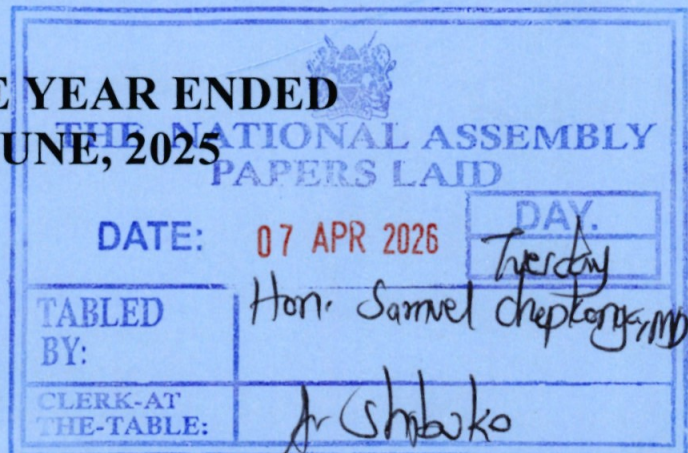 E YEAR ENDED
UNE, 2025
THE NATIONAL ASSEMBLY
PAPERS LAID
DATE: 07 APR 2026
DAY.
Tuesday
TABLED BY:
Hon. Samuel Chepkonga, MP
CLERK-AT THE-TABLE: